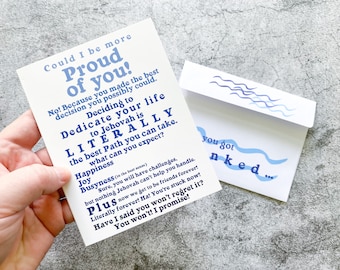 Could I be more
Proud
of you!
No! Because you made the best
decision you possibly could.
Deciding to
Dedicate your life
to Jehovah is
LITERALLY
the best Path you can take,
what can you expect?
Happiness
Joy
Busyness (in the best sense)
Sure, you will have challenges,
but nothing Jehovah can't help you handle.
Plus now we get to be friends forever!
Literally forever! Ha! You're stuck now!
Have I said you won't regret it?
You won't! I promise!
you got
nked...